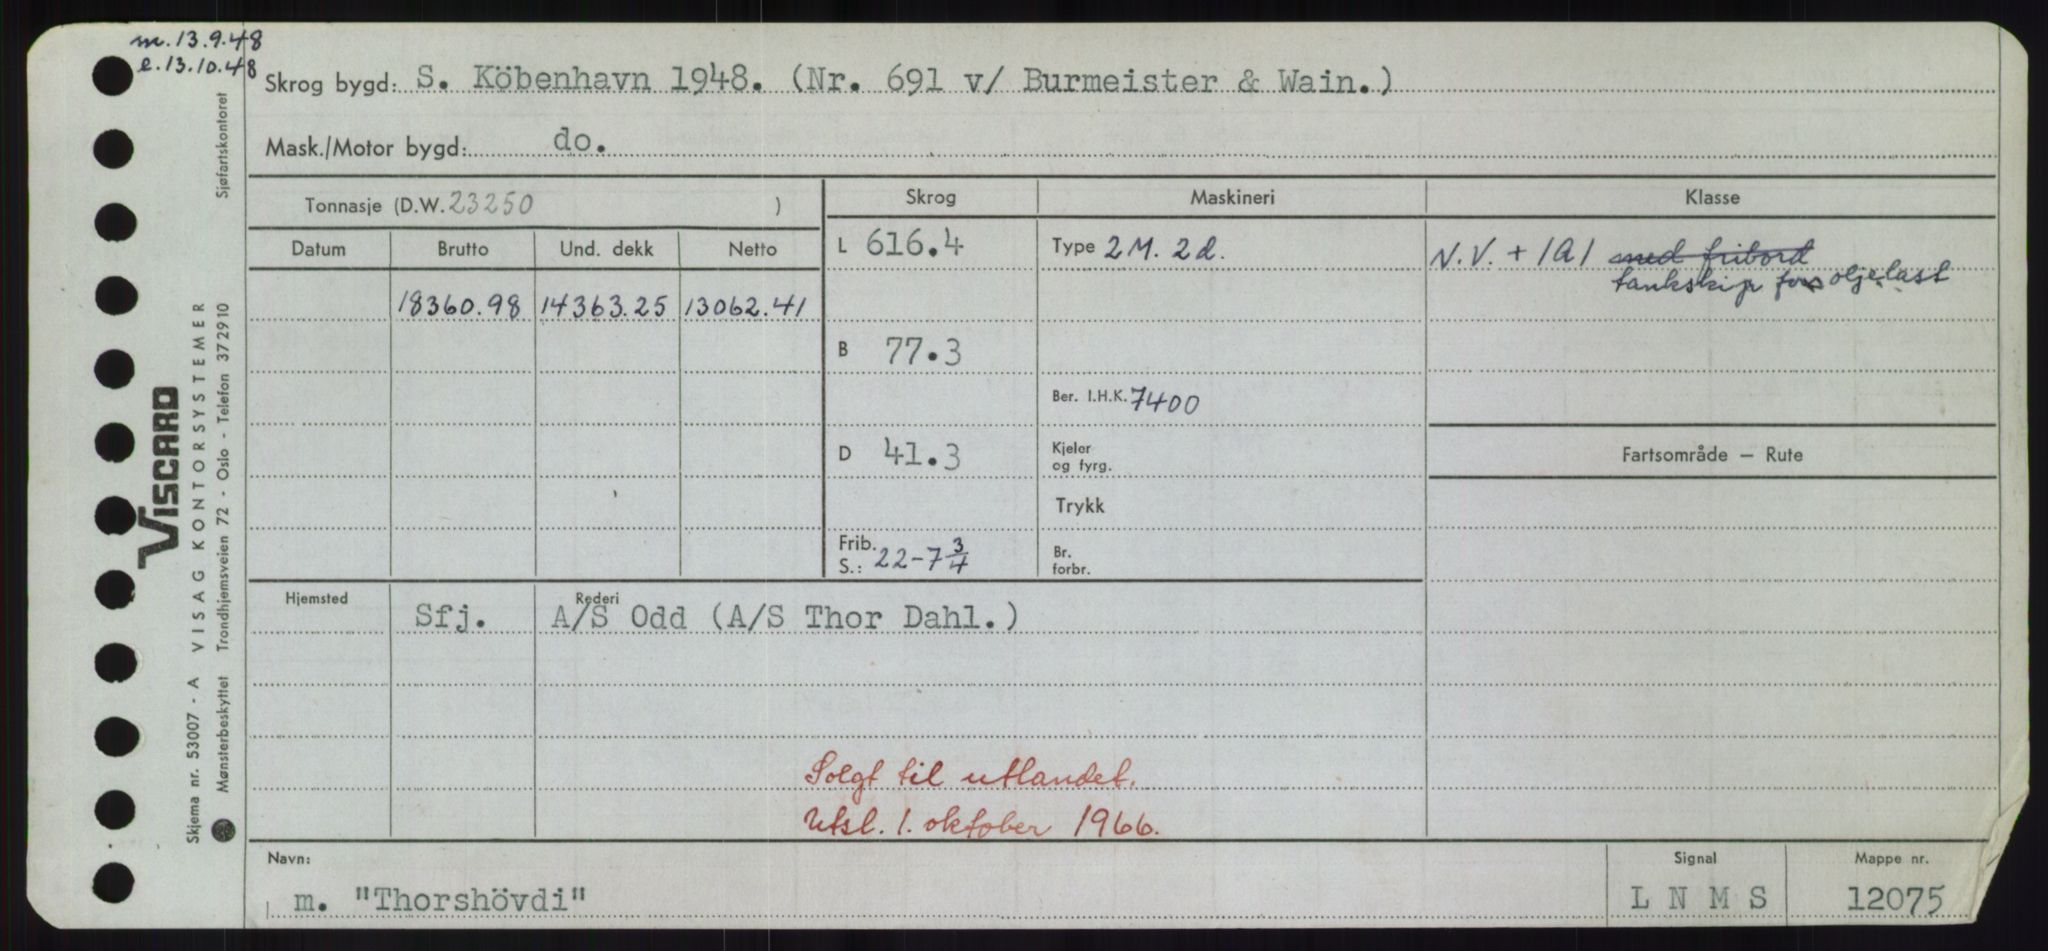 m. 13.9.48
e. 13.10.48
Skrog bygd: S. Köbenhavn 1948. (Nr. 691 v/ Burmeister & Wain.)
Mask./Motor bygd: do.
Tonnasje (D.W. 23250 )
Skrog Maskineri Klasse
Datum Brutto Und. dekk Netto
L 616.4 Type 2 M. 2 d. N.V. + 1A1 med fribord
tankskip for oljelast
18360.98 14363.25 13062.41
B 77.3
Ber. I.H.K. 7400
D 41.3 Kjeler
og fyrg.
Fartsområde — Rute
Trykk
Frib.
S.: 22-7 3/4
Br.
forbr.
Hjemsted Rederi
Sfj. A/S Odd (A/S Thor Dahl.)
Solgt til utlandet.
Utsl. 1. oktober 1966.
Navn: Signal Mappe nr.
m. "Thorshövdi" L N M S 12075
VISCARD
Skjema nr. 53007 - A VISAG KONTORSYSTEMER
Mønsterbeskyttet Trondhjemsveien 72 - Oslo - Telefon 372910 Sjøfartskontoret